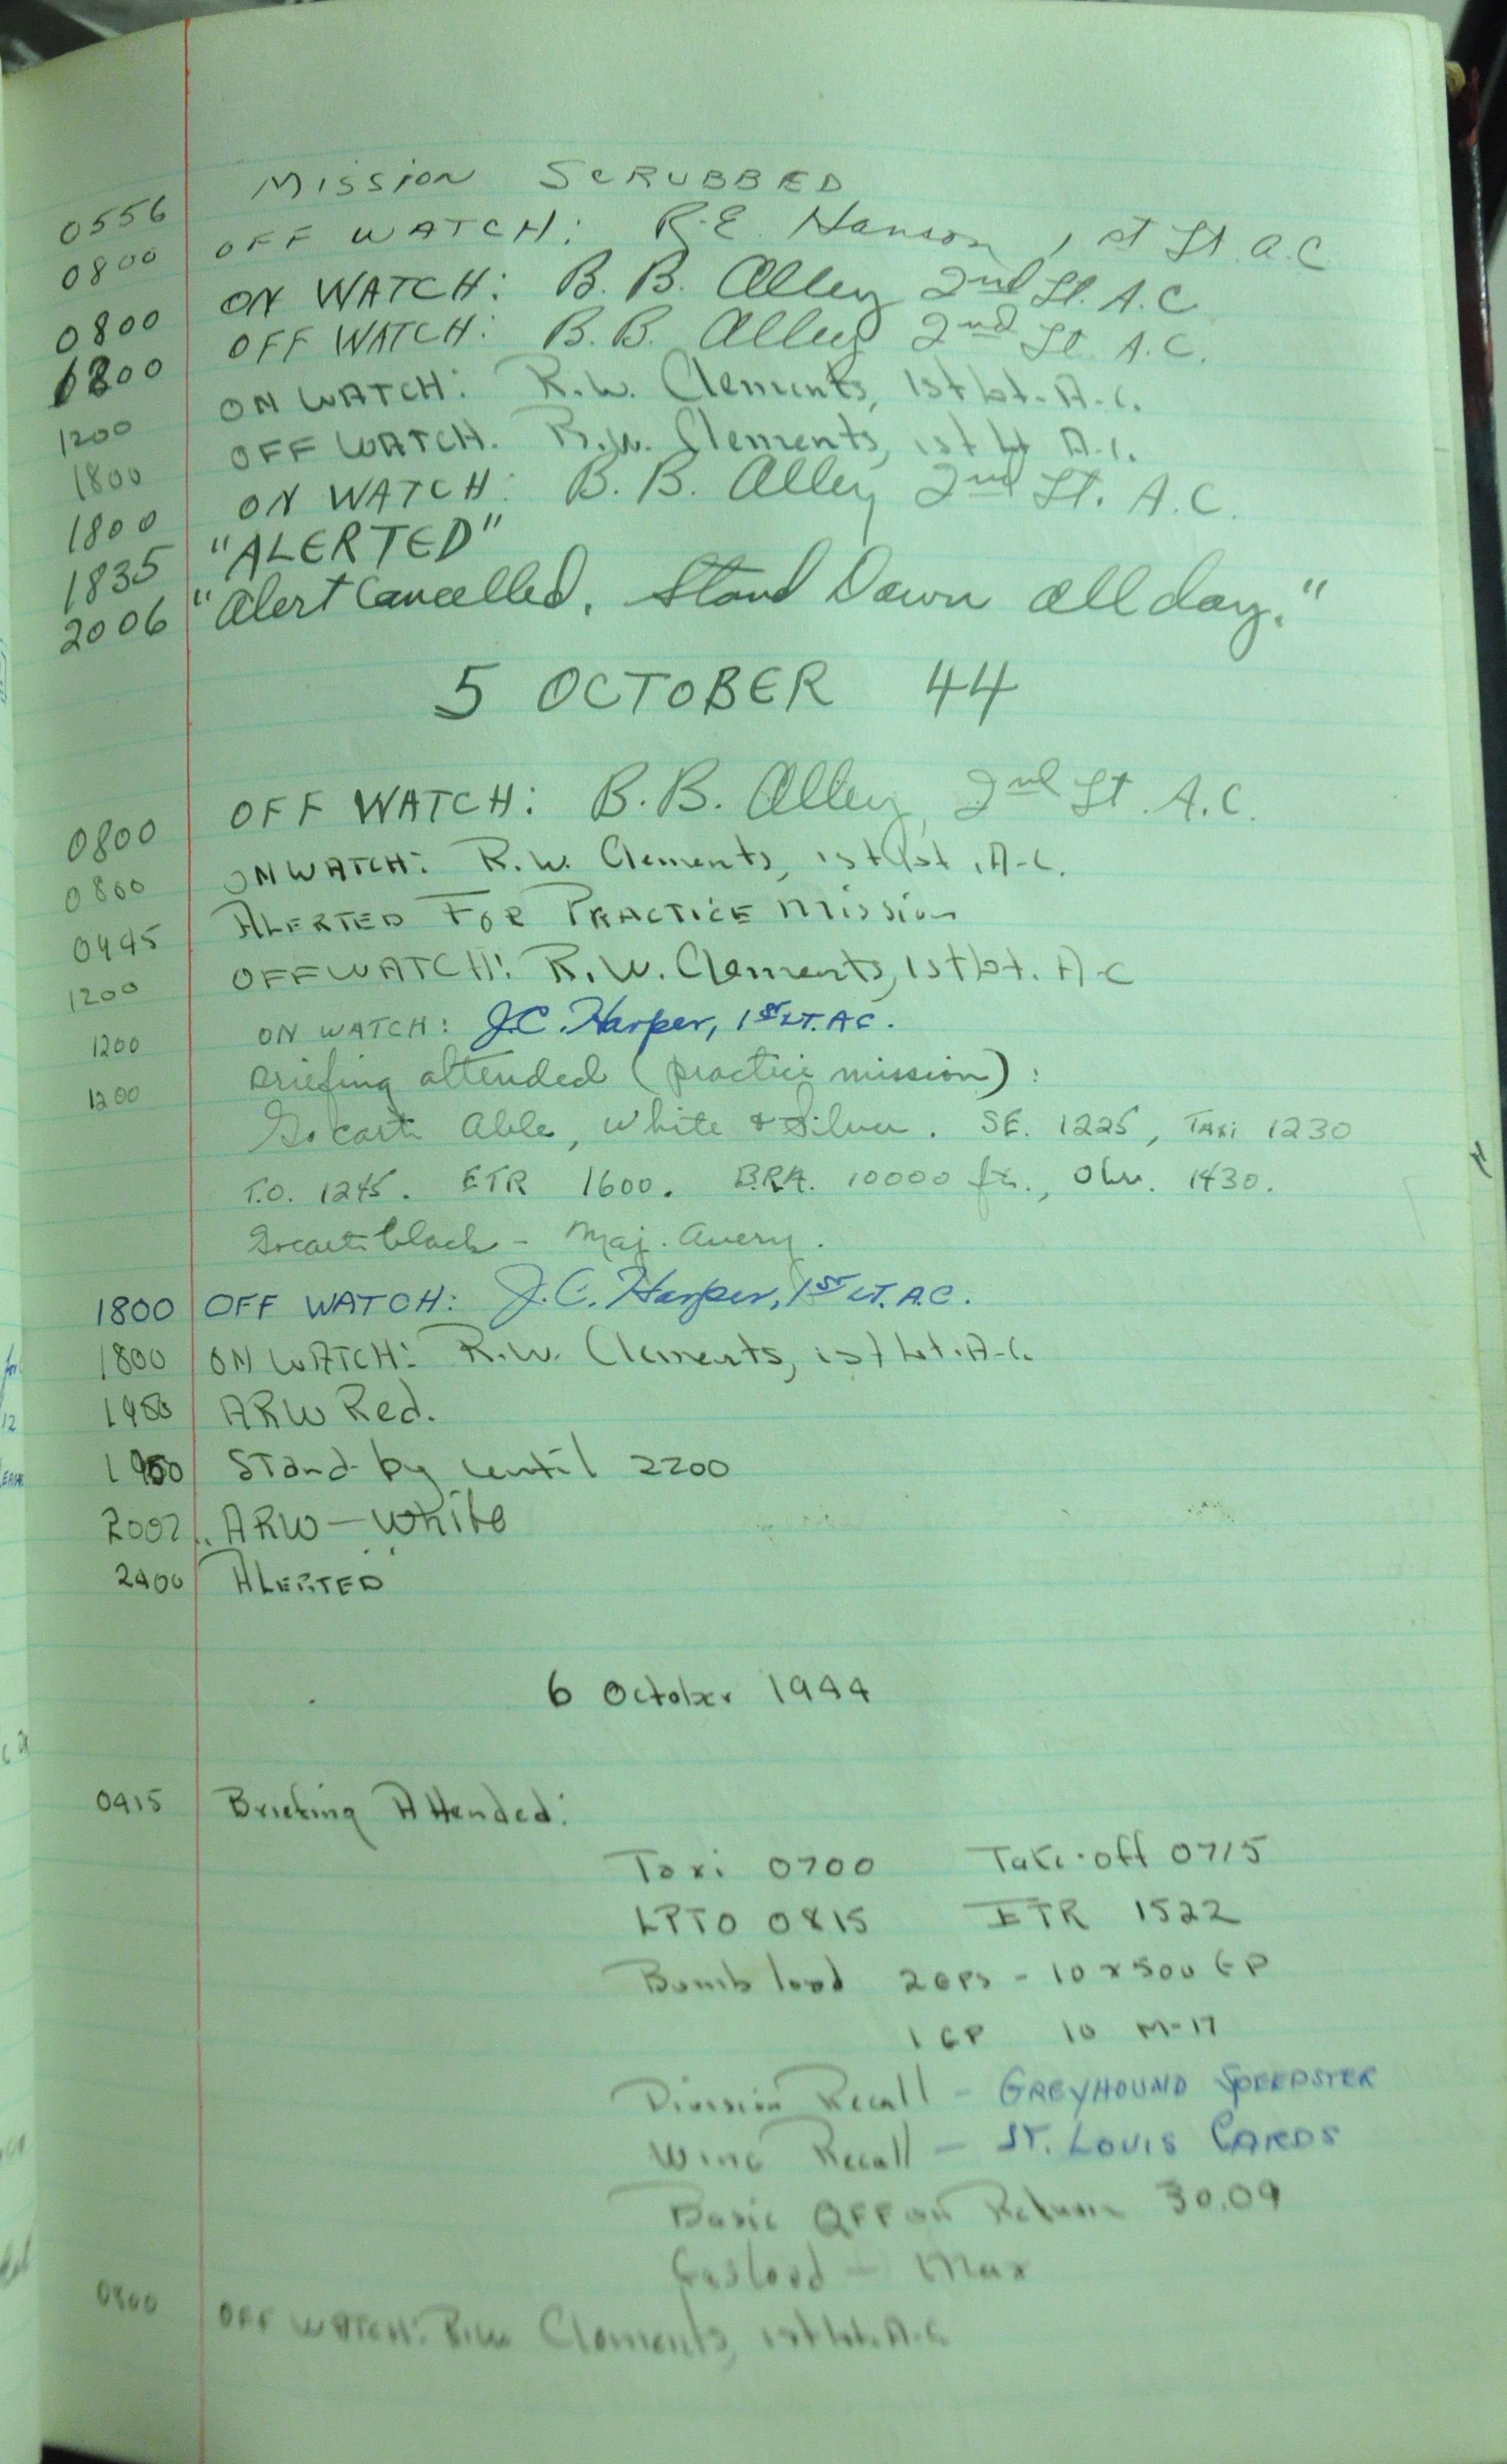 0556 Mission SCRUBBED
0800 OFF WATCH: R.E. Hanson, 1st Lt. A.C.
0800 ON WATCH: B. B. Alley 2nd Lt. A.C.
1200 OFF WATCH: B.B. Alley 2nd Lt. A.C.
1200 ON WATCH: R.W. Clements, 1st Lt. A.C.
1800 OFF WATCH. R.W. Clements, 1st Lt A.C.
1800 ON WATCH: B. B. Alley 2nd Lt. A.C.
1835 "ALERTED"
2006 "Alert Cancelled. Stand Down all day."
5 OCTOBER 44
0800 OFF WATCH: B.B. Alley, 2nd Lt. A.C.
0800 ON WATCH: R.W. Clements, 1st Lt., A.C.
0945 ALERTED FOR PRACTICE Mission
1200 OFF WATCH: R.W. Clements, 1st Lt. A.C
1200 ON WATCH: J.C. Harper, 1ST LT. A.C.
1200 Briefing attended (practice mission):
Gocart Able, White & Silver. S.E. 1225, Taxi 1230
T.O. 1245. ETR 1600. B.R.A. 10000 ft., 1430.
Gocart black - Maj. Avery.
1800 OFF WATCH: J.C. Harper, 1ST LT. A.C.
1800 ON WATCH: R.W. Clements, 1st Lt. A.C.
ARW Red.
1950 Stand-by until 2200
2002 ARW - White
2400 ALERTED
6 October 1944
0415 Briefing Attended:
Taxi 0700 Take-off 0715
LPTO 0815 ETR 1522
Bomb load 2 GPs - 10 x 500 GP
1 GP 10 M-17
Division Recall - GREYHOUND SPEEDSTER
Wing Recall - ST. LOUIS CARDS
Basic QFF on Return 30.09
Gas Load - Max
0800 OFF WATCH: R.W. Clements, 1st Lt. A.C.